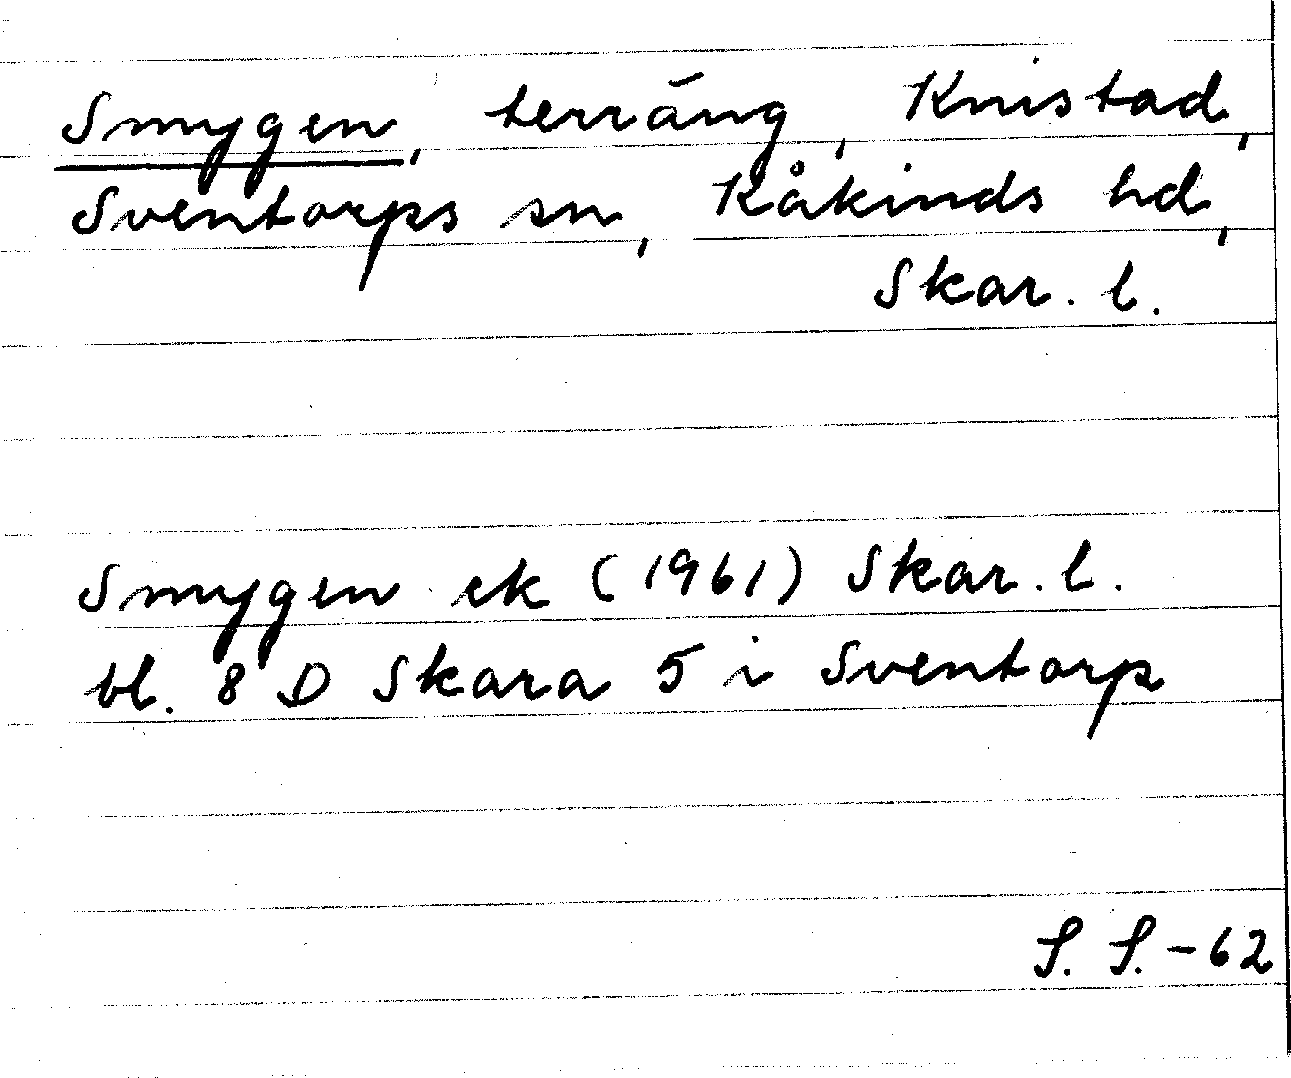 Smygen, terräng, Knistad,
Sventorps sn, Kåkinds hd,
Skar. l.
Smygen ek (1961) Skar. l.
bl. 8 D Skara 5 i Sventorp
S. S. - 62